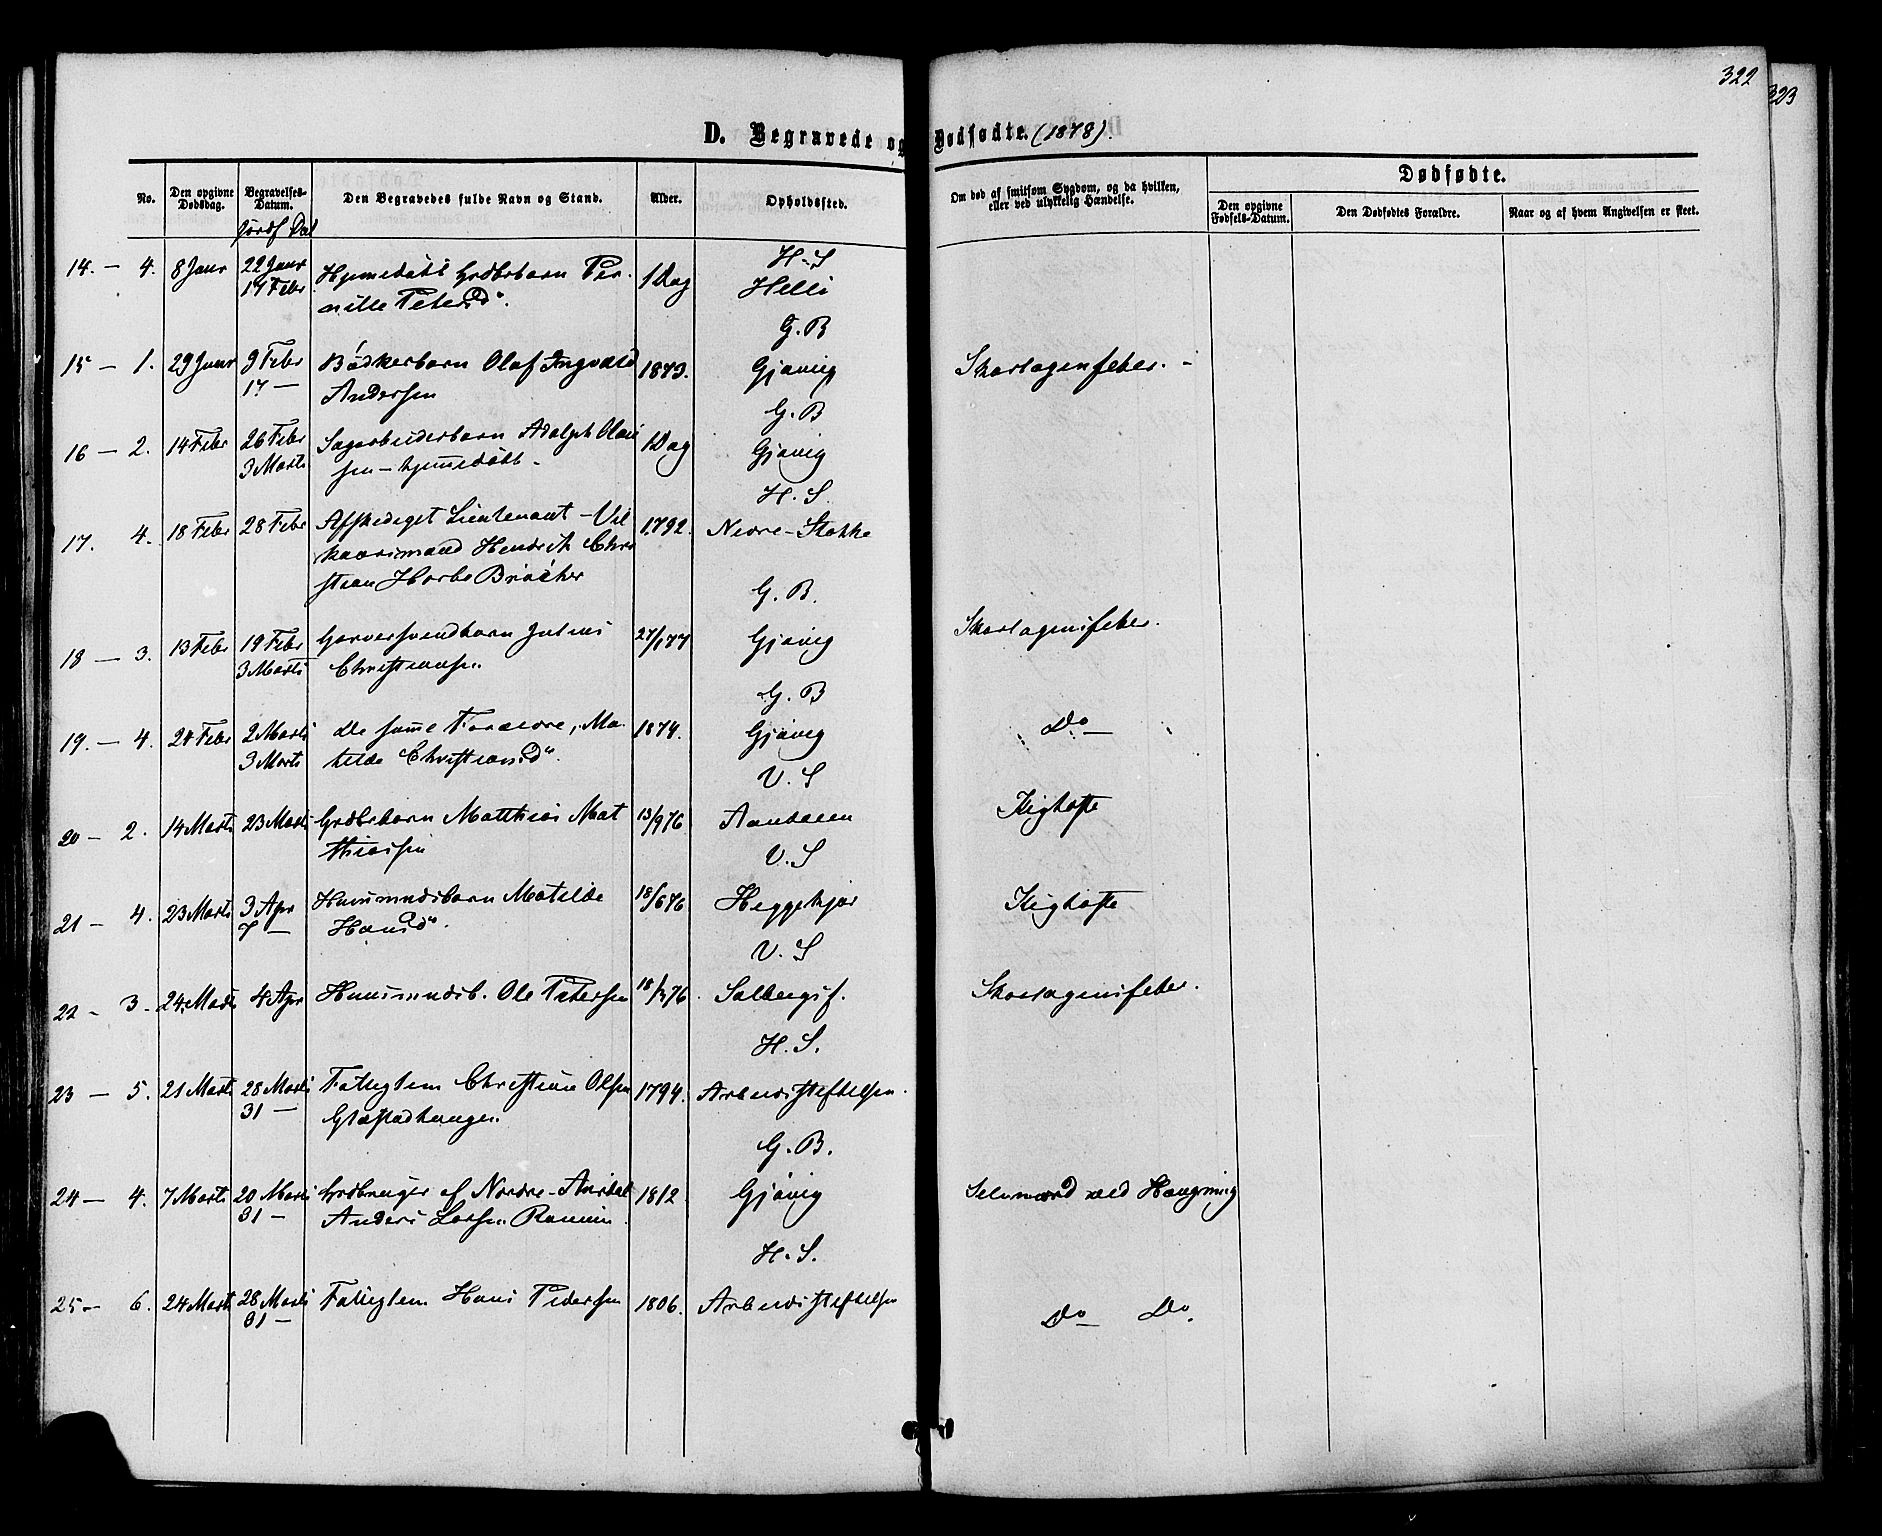 322
323
D. Begravede og Dødfødte. (1878).
No.
Den opgivne Dødsdag.
Begravelses-Datum.
Jordf Dat
Den Begravedes fulde Navn og Stand.
Alder.
Opholdssted.
Om død af smitsom Sygdom, og da hvilken, eller ved ulykkelig Hændelse.
Dødfødte.
Den opgivne Fødsels-Datum.
Den Dødfødtes Forældre.
Naar og af hvem Angivelsen er skeet.
H. S
14. — 4. 8 Janr 22 Janr Hjemedøbt Grdbrbarn Per- 1 Dag Helli
14 Febr nille Petersd".
G. B
15 — 1. 29 Janr 9 Febr Bødkerbarn Olaf Ingvald 1873. Gjøvig Skarlagensfeber. -
17 — Andersen
G. B
16 — 2. 14 Febr 26 Febr Sagarbeiderbarn Adolph Olai 1 Dag Gjøvig
3 Marts sen - hjemedøbt -
H. S.
17. 4. 18 Febr 28 Febr Afskediget Lieutenant - Vil 1792. Nedre-Stokke
kaarsmand Hendrik Chri
stian Horbo Bröcher
G. B.
18 — 3. 13 Febr 19 Febr Garversvendbarn Julius 27/1 77 Gjøvig Skarlagensfeber.
3 Marts Christiansen
G. B
19. — 4. 24 Febr 2 Marts de samme Forældre, Ma- 1874. Gjøvig Do —
3 Marts thilde Christiansd".
V. S
20 — 2. 14 Marts 23 Marts Grdbrbarn Matthias Mat 13/9 76 Aandalen Kighoste
thiassen
V. S
21 — 4. 23 Marts 3 Apr Huusmndsbarn Matilde 18/6 76 Heggekjær Kighoste
7 — Hansd".
V. S
22 - 3. 24 Marts 4 Apr Huusmndsb. Ole Petersen 18/ 76. Solbergsf. Skarlagensfeber.
H. S.
23 — 5. 21 Marts 28 Marts Fattiglem Christian Olsen 1794. Arbeidsstiftelsen.
31 — Gløstadhaugen
G. B.
24 — 4. 7 Marts 20 Marts Grdbruger af Nordre- 1812 Gjøvig Selvmord ved Hængning
31 — Anders Larsen
H. S.
25 — 6. 24 Marts 28 Marts Fattiglem Hans Pedersen 1806. Arbeidsstiftelsen Do — Do.
31 —